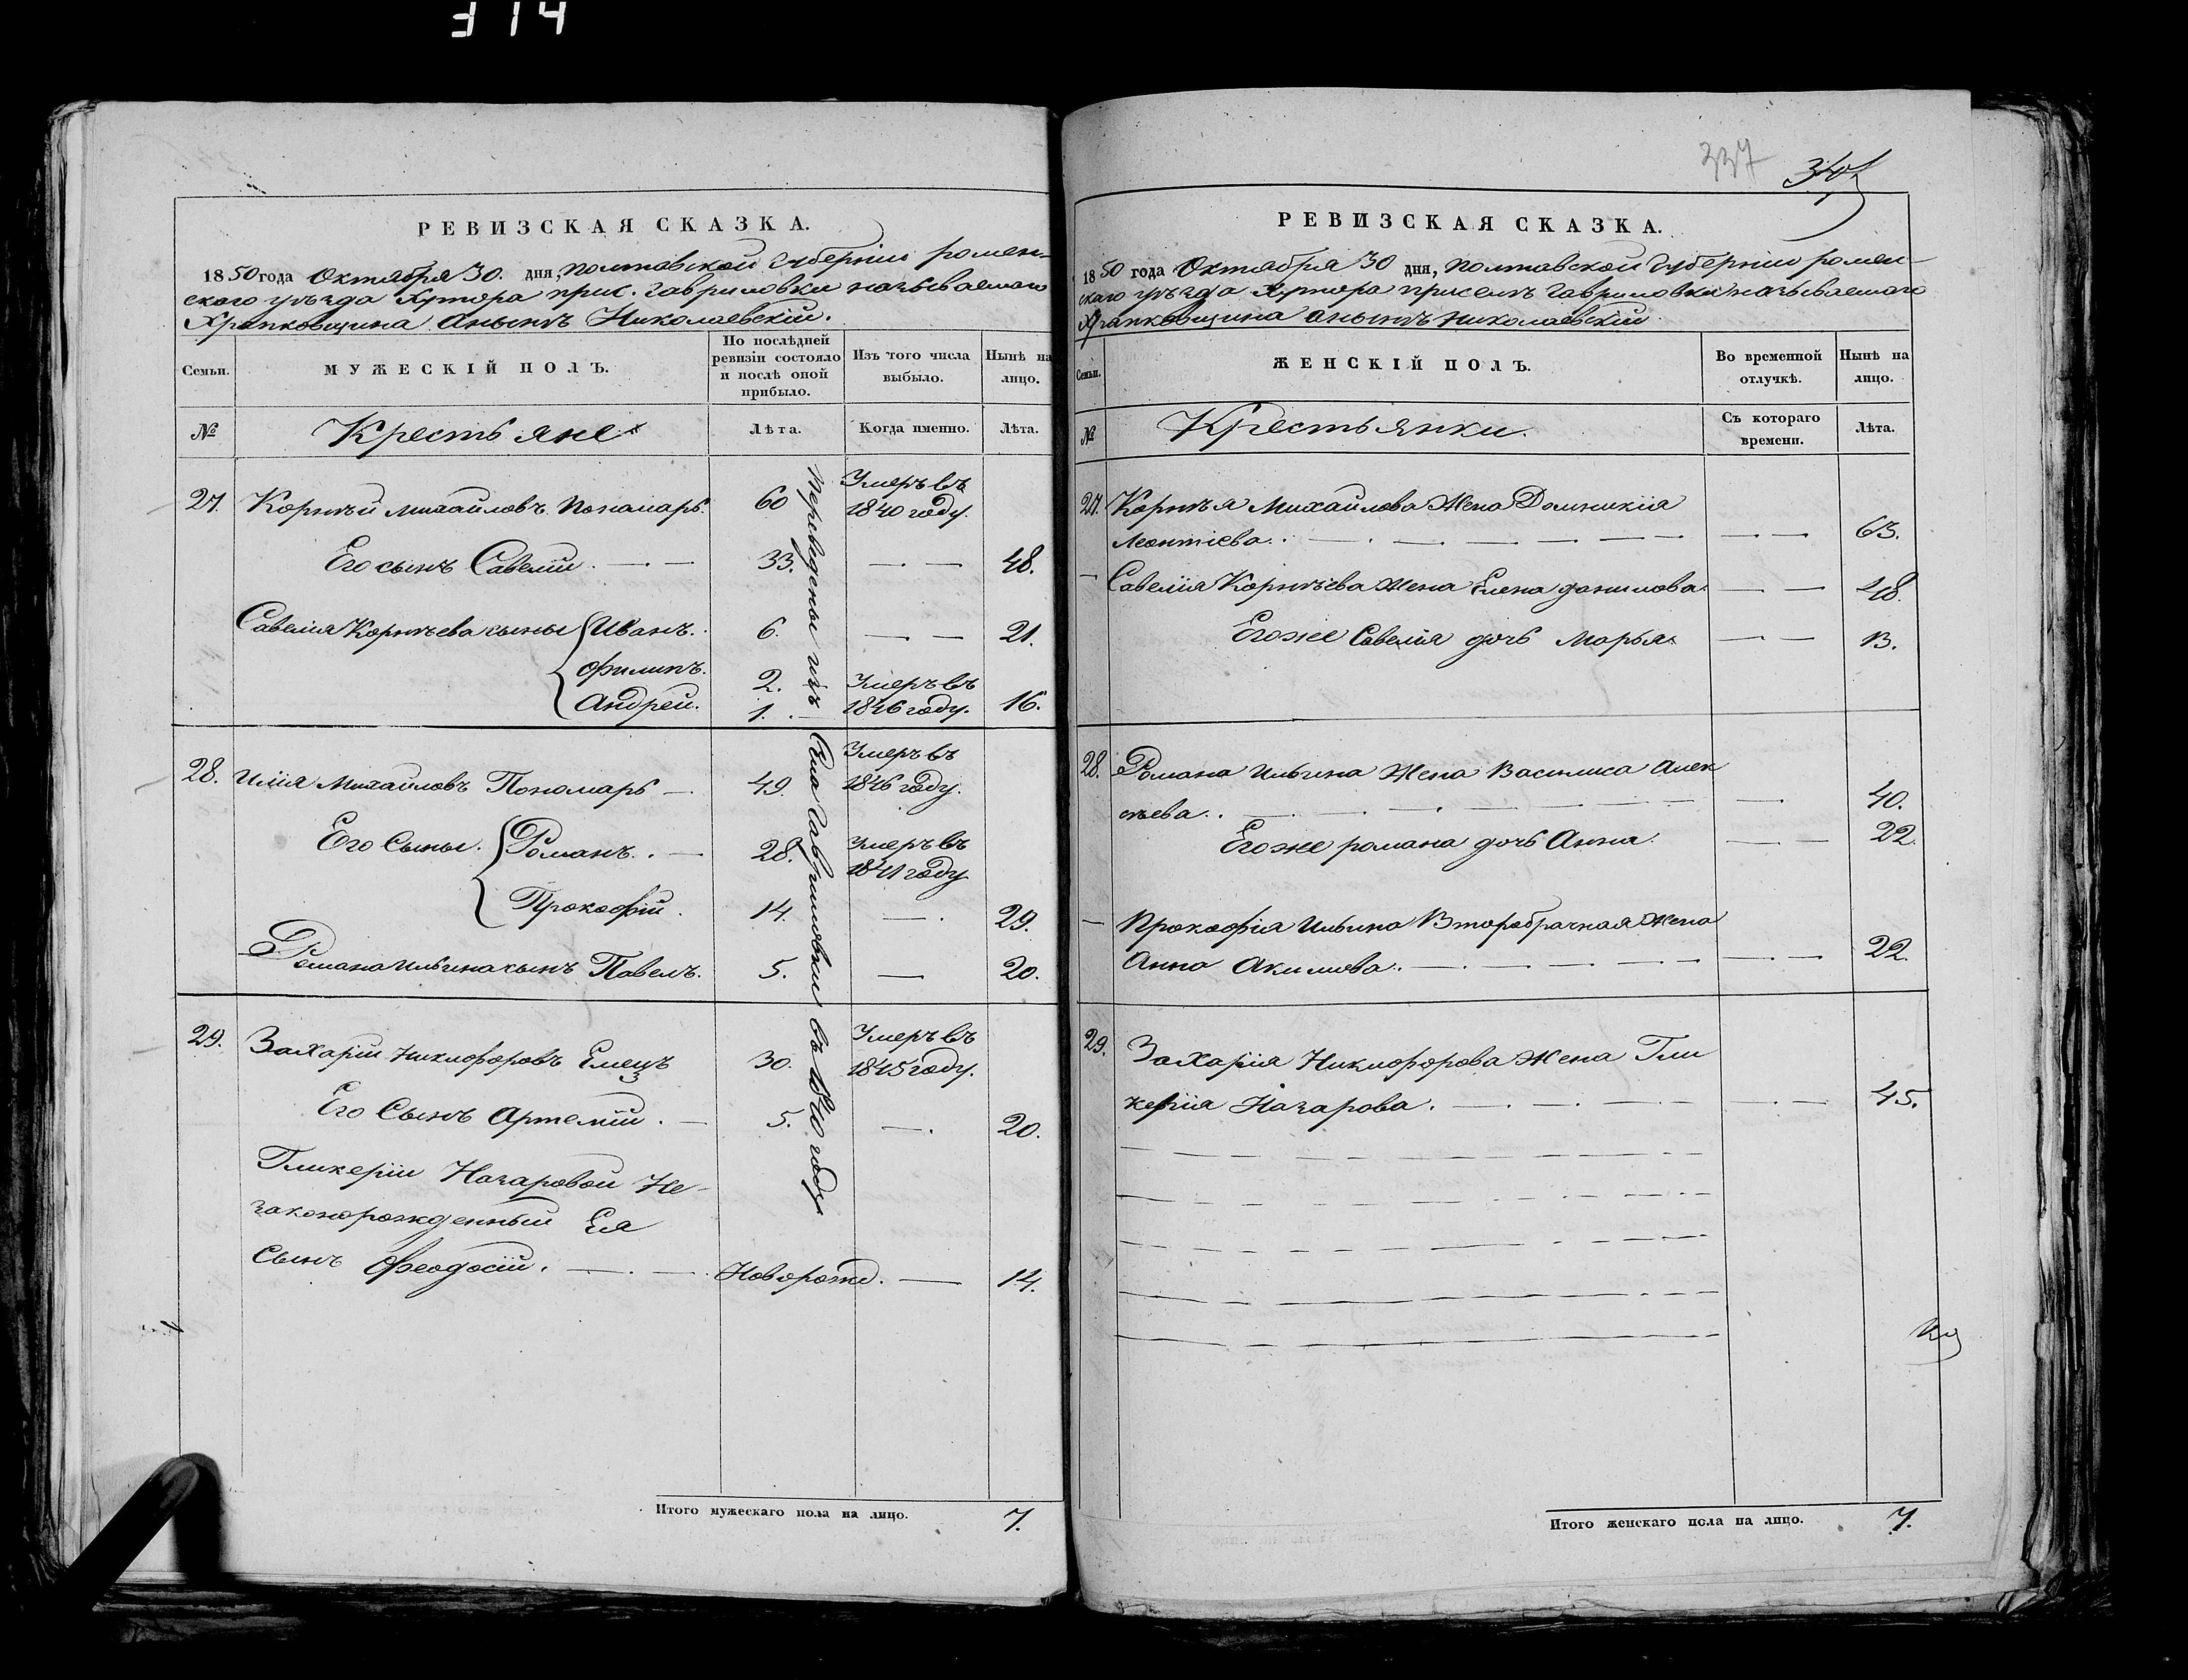 314
РЕВИЗСКАЯ СКАЗКА.
1850 года Октября 30. дня, Полтавской Губерніи ромен-
ского уѣзда Хутора прис. Гавриловки называемаго
Храпковщина аныпѣ Николаевскій.
Семьи.
МУЖЕСКІЙ ПОЛЪ.
По послѣдней ревизіи состояло и послѣ оной прибыло.
Изъ того числа выбыло.
Нынѣ на лицо.
№
Крестьяне
Лѣта.
Когда именно.
Лѣта.
27. Корнѣй Михайловъ Пономарь. 60 Умеръ въ 1840 году.
Его сынъ Савелій. 33. 48.
Савелія Корнѣева сыны Иванъ. 6. 21.
Филипъ. 2. Умеръ въ 1846 году.
Андрей. 1. 16.
28. Илія Михайловъ Пономарь 49. Умеръ въ 1846 году.
Его Сыны. Романъ. 28. Умеръ въ 1841 году
Прокофій. 14. 29.
Романа Ильина сынъ Павелъ. 5. 20.
29. Захарій Никифоровъ Емецъ 30. Умеръ въ 1845 году.
Его Сынъ Артемій. 5. 20.
Гликеріи Назаровой Не-
законорожденный Ея
Сынъ Феодосій. Новорожд. 14.
Переведены изъ Села Гавриловки въ 1840 году
Итого мужескаго пола на лицо. 7.
337
РЕВИЗСКАЯ СКАЗКА.
1850 года Октября 30 дня, Полтавской Губерніи ромен-
скаго уѣзда Хутора приселъ Гавриловки называемаго
Храпковщина аныпѣ Николаевскій
Семьи.
ЖЕНСКІЙ ПОЛЪ.
Во временной отлучкѣ.
Нынѣ на лицо.
№
Крестьянки.
Съ котораго времени.
Лѣта.
27. Корнѣя Михайлова Жена Домникія
Леонтіева. 63.
Савелія Корнѣева Жена Елена данилова. 48.
Егоже Савелія дочь Марья 13.
28. Романа Ильина Жена Василиса Алек
сѣева. 40.
Егоже романа дочь Анна. 22.
Прокофія Ильина Второбрачная Жена
Анна Акимова. 22.
29. Захарія Никифорова Жена Гли
керія Назарова. 45.
Итого женскаго пола на лицо. 7.